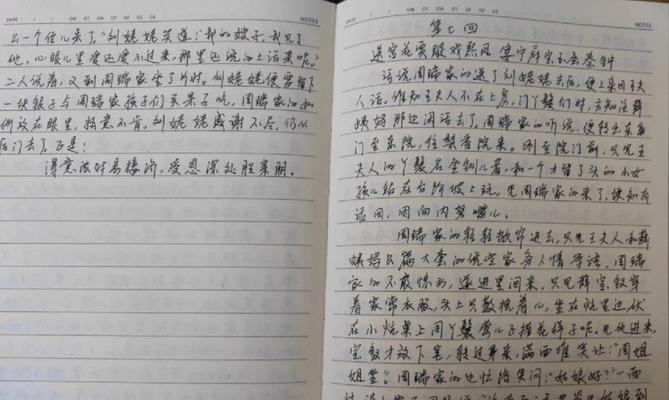 DATE / / MO TU WE TH FR SA SU
NOTES
么一个侄儿来了。”刘姥姥笑道:“我的嫂子,我见了
他,心眼儿里爱还爱不过来,那里还说的上话来呢。”
二人说着,又到周瑞家坐了片时。刘姥姥便要留下
一块银子与周瑞家孩子们买果子吃,周瑞家的如
何放在眼里,执意不肯。刘姥姥感谢不尽,仍从
后门去了。正是:
得意浓时易接济,受恩深处胜亲朋。
DATE / / MO TU WE TH FR SA SU
NOTES
第七回
送宫花贾琏戏熙凤 宴宁府宝玉会秦钟
话说周瑞家的送了刘姥姥去后,便上来回王夫
人话。谁知王夫人不在上房,问丫鬟们时,方知往薛
姨妈那边闲话去了。周瑞家的听说,便转出东角
门至东院,往梨香院来。刚至院门前,只见王
夫人的丫鬟名金钏儿者,和一个才留了头的小女
孩儿站在台阶坡上玩。见周瑞家的来了,便知有
话回,因向内努嘴儿。
周瑞家的轻轻掀帘进去,只见王夫人和薛
姨妈长篇大套的说些家务人情等语。周瑞
家的不敢惊动,遂进里间来。只见薛宝钗穿
着家常衣服,头上只散挽着儿,坐在炕里边,伏
在小炕桌上同丫鬟莺儿正描花样子呢。见他进来,
宝钗才放下笔,转过身来,满面堆笑让:“周姐
姐坐。”周瑞家的也忙陪笑问:“姑娘好?”一面